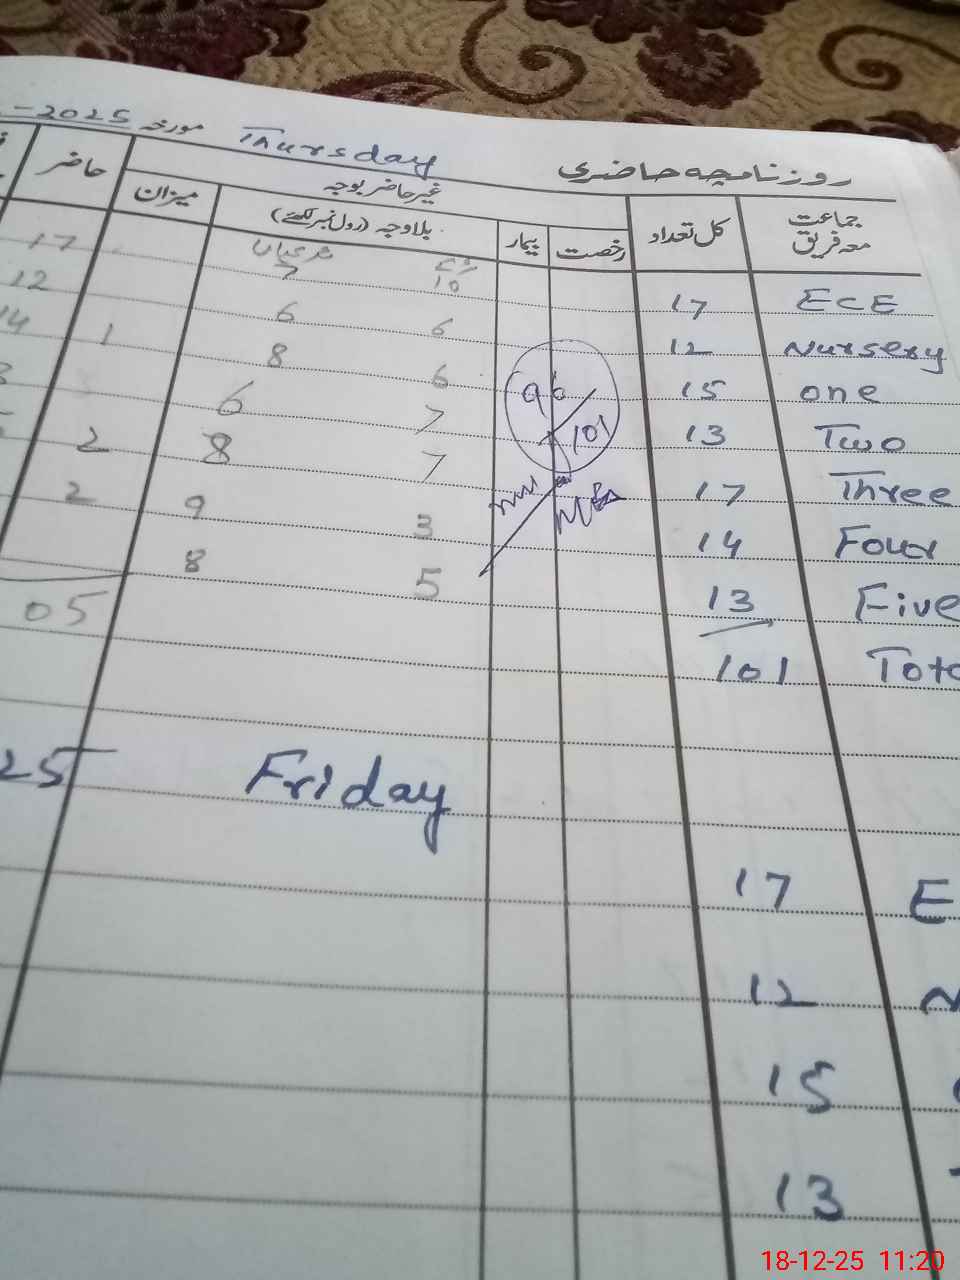 روزنامچہ حاضری Thursday مورخہ -2025
جماعت معہ فریق کل تعداد رخصت بیمار غیر حاضر بوجہ میزان حاضر
بلاوجہ (رول نمبر لکھئے)
ECE 17 10 7 17
Nursery 12 6 6 12
one 15 6 8 1 14
Two 13 7 6
Three 17 7 8 2
Four 14 3 9 2
Five 13 5 8
101 05
96
101
Friday 25
17
12
15
13
18-12-25 11:20